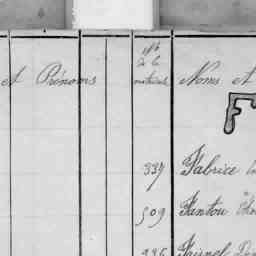 et Prénoms
Nº
de la
matricule
Noms et
F
337 Fabrice
509 Fantou